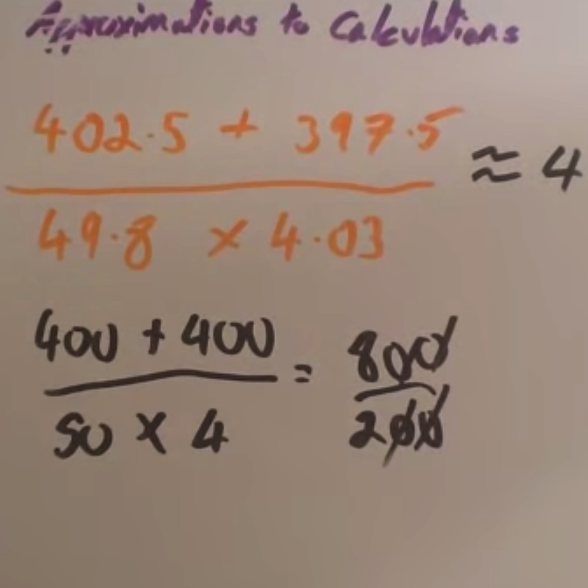 Approximations to Calculations
402.5 + 397.5
49.8 × 4.03
≈ 4
400 + 400
50 × 4
=
800
200